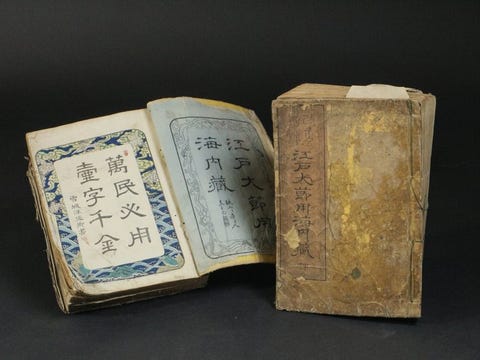 江戸大節用
海内藏
萬民必用
壹字千金
江戸大節用海内藏